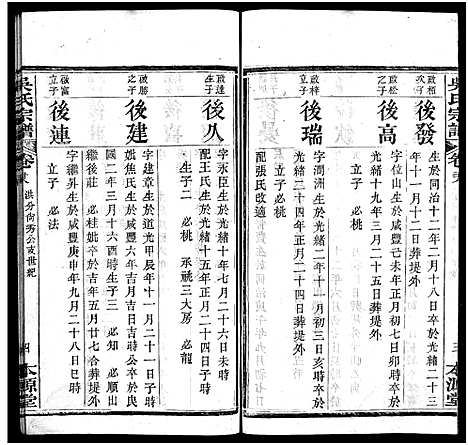 吳氏宗譜
卷
三
本源堂
啟桓之子
後發
生於同治十二年二月十八日卒於光緒二十三
年十一月十二日葬堤外
啟松之子
後高
字位山生於咸豐三年十一月初二日未時卒於
光緒十九年三月十四日葬堤外
立子 必桃
啟梓之子
後瑞
字潤洲生於光緒二年十一月初三日亥時卒於
光緒二十四年正月二十四日葬堤外
立子 必桃
配張氏改適
啟達生子
後八
字永臣生於光緒十年七月二十六日未時
配王氏生於光緒十五年正月二十二日卯時
生子二 必桃 承祧三大房 必龍
啟勝之子
後建
字建章生於道光甲辰年十一月二十一日卯時
媲焦氏生於咸豐年吉月吉日吉時公卒於民
國二年三月十六酉時生子三 必知 必順出
繼後莊 必桂媲卒於吉年五月廿七合葬堤外
啟富立子
後連
字繼昇生於咸豐庚申年九月二十八日巳時
立子 必法
吳氏宗譜
卷
洪分向秀公支世紀
四
本源堂